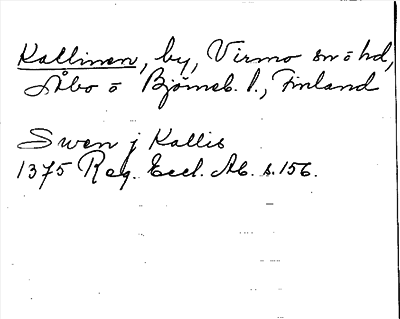 Kallinen, by, Virmo sn o hd,
Åbo o Björneb. l., Finland
Swen j Kallis
1375 Reg. Eccl. Ab. s. 156.